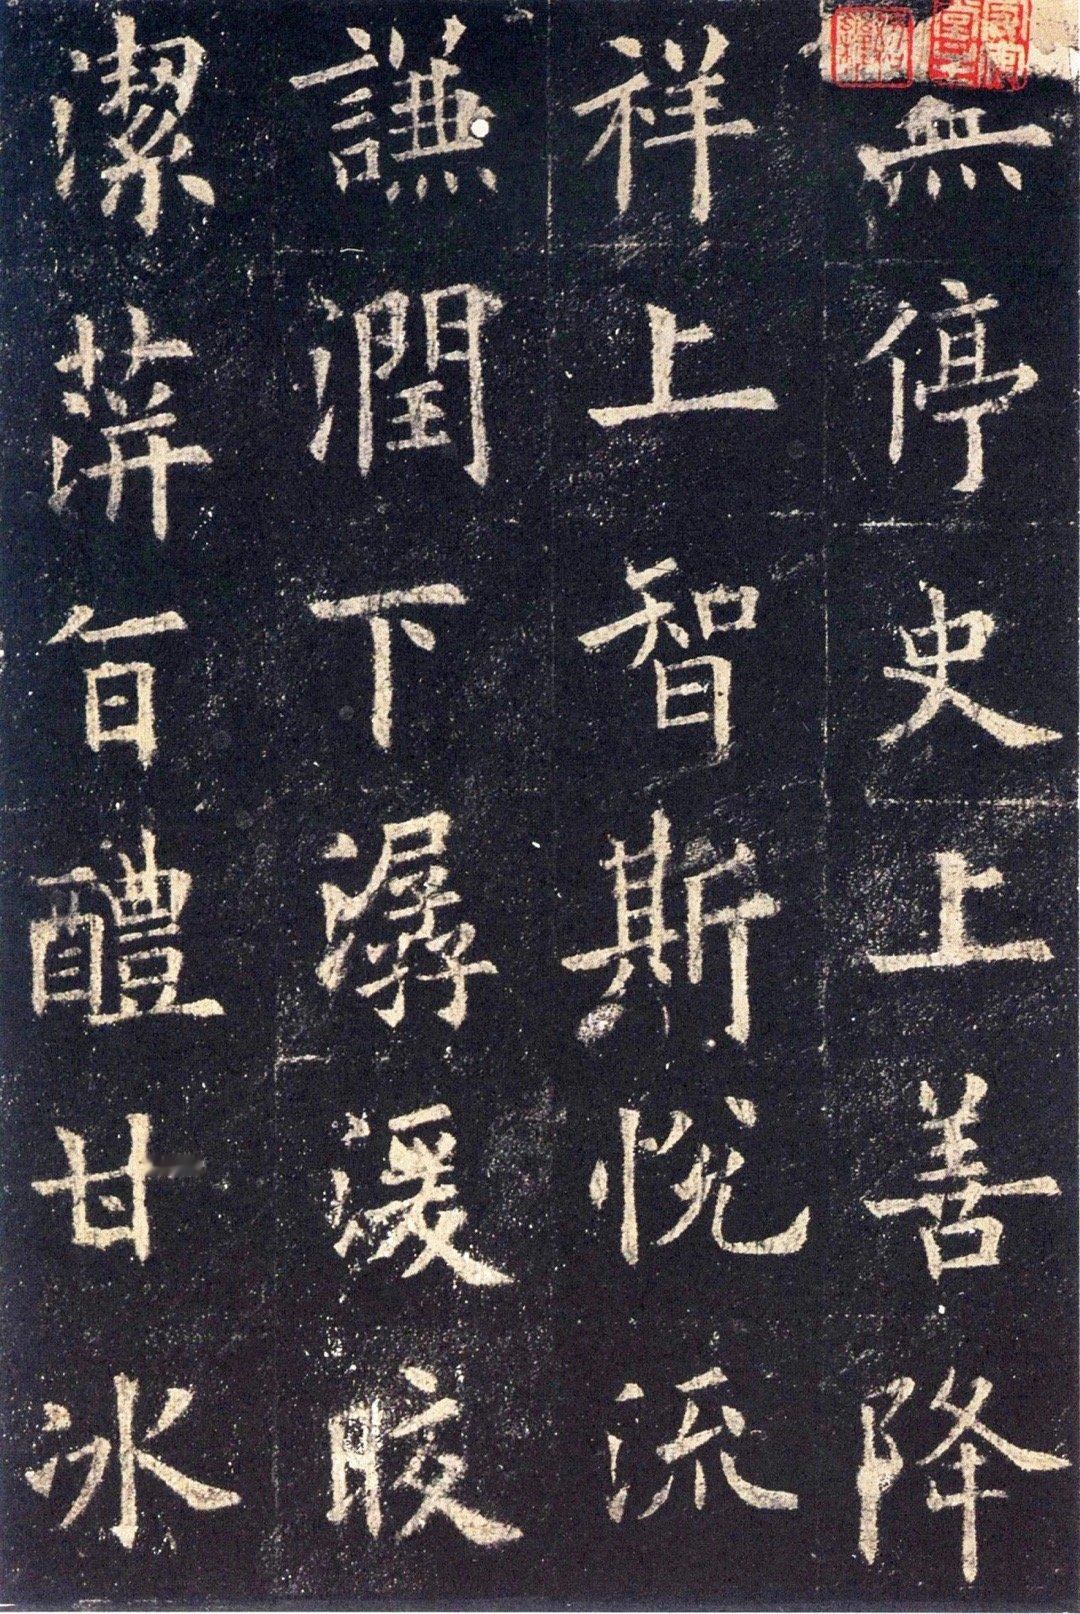 無停史上善降
祥上智斯悅流
謙潤下潺湲晈
潔蓱旨醴甘冰